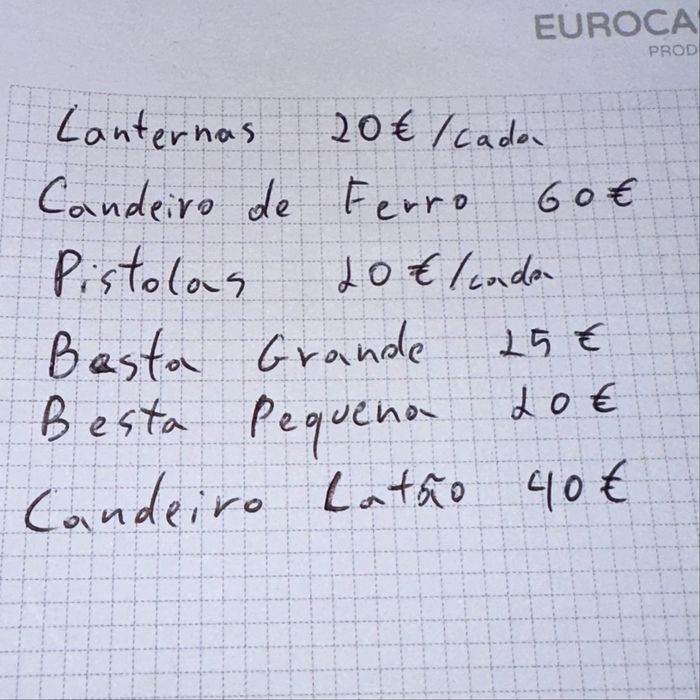 EUROCA
PROD
Lanternas 20€/cada
Candeiro de Ferro 60€
Pistolas 20€/cada
Basta Grande 25€
Besta Pequena 20€
Candeiro Latão 40€